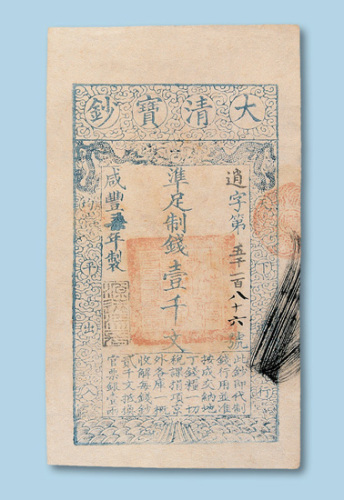 大清寶鈔
天下通行
逍字第五千一百八十六號
準足制錢壹千文
咸豐年製
均平出入
此鈔即代制
錢行用並准
按成交納地
丁錢糧一切
稅課捐項京
外各庫一概
收解每錢鈔
貳千文抵換
官票銀壹兩